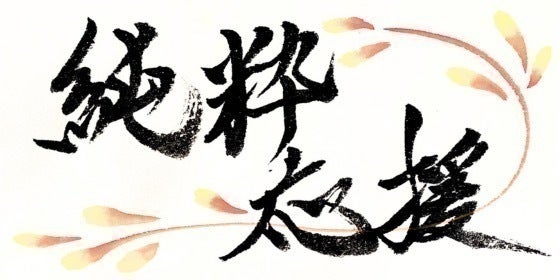 純粋
応援